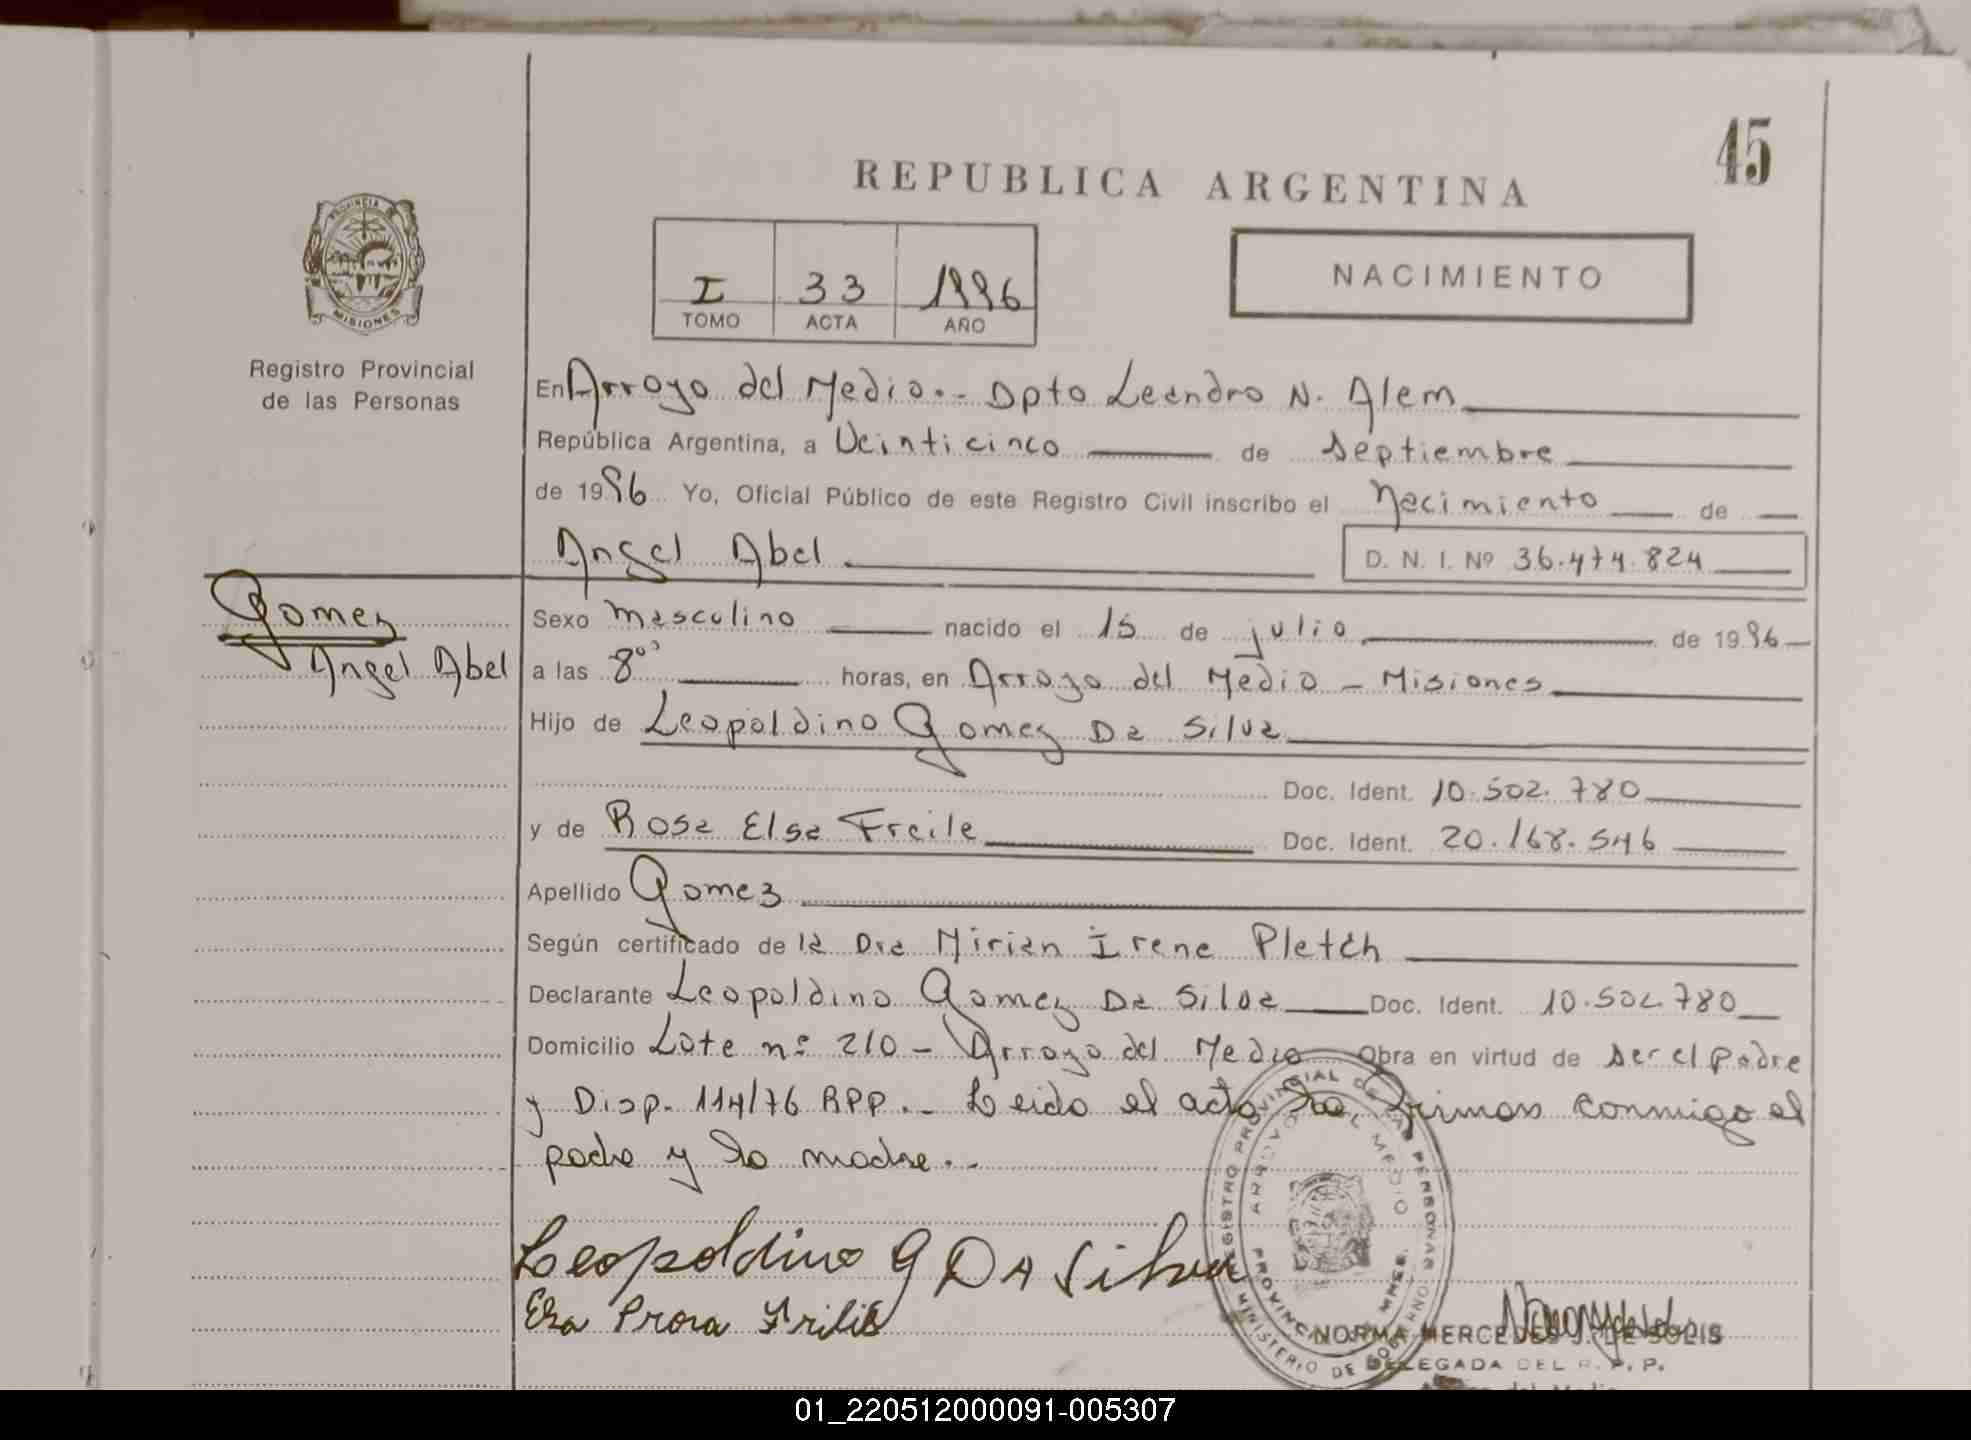 45
REPUBLICA ARGENTINA
PROVINCIA DE
MISIONES
I 33 1996
TOMO ACTA AÑO
NACIMIENTO
Registro Provincial
de las Personas
En Arroyo del Medio.- Dpto Leandro N. Alem
República Argentina, a Veinticinco de septiembre
de 1996 Yo, Oficial Público de este Registro Civil inscribo el Nacimiento de
Angel Abel D. N. I. Nº 36.474.824
Gomez
Angel Abel
Sexo masculino nacido el 15 de julio de 1996
a las 8°° horas, en Arroyo del Medio - Misiones
Hijo de Leopoldino Gomez Da Silva
Doc. Ident. 10.502.780
y de Rosa Elsa Freile Doc. Ident. 20.168.546
Apellido Gomez
Según certificado de la Dra Mirian Irene Pletch
Declarante Leopoldino Gomez Da Silva Doc. Ident. 10.502.780
Domicilio Lote nº 210 - Arroyo del Medio Obra en virtud de ser el padre
y Disp. 114/76 RPP.- Leido el acta firman conmigo el
padre y la madre.-
Leopoldino G DA Silva
REGISTRO PROVINCIAL DE LAS PERSONAS
ARROYO DEL MEDIO
MINISTERIO DE GOBIERNO
NORMA MERCEDES J. DE SOLIS
DELEGADA DEL R. P. P.
01_220512000091-005307